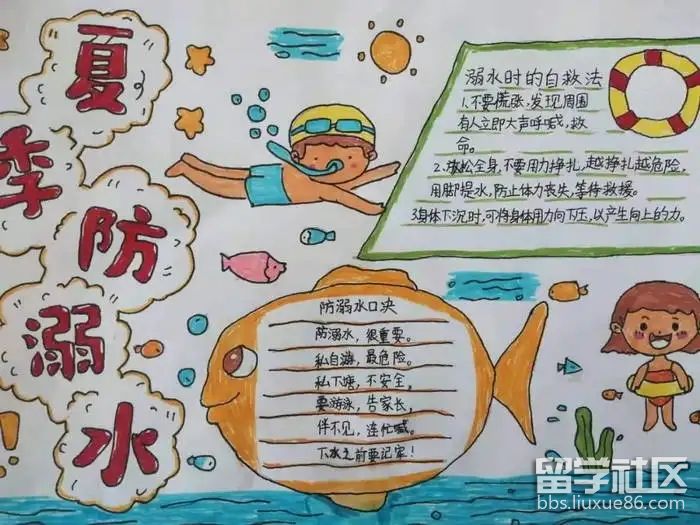 夏季防溺水
溺水时的自救法
1.不要慌张,发现周围
有人立即大声呼喊,救
命。
2.放松全身,不要用力挣扎,越挣扎越危险,
用脚提水,防止体力丧失,等待救援。
3身体下沉时,可将身体用力向下压,以产生向上的力。
防溺水口决
防溺水,很重要。
私自游,最危险。
私下塘,不安全。
要游泳,告家长,
伴不见,连忙喊。
下水之前要记牢!
留学社区
bbs.liuxue86.com